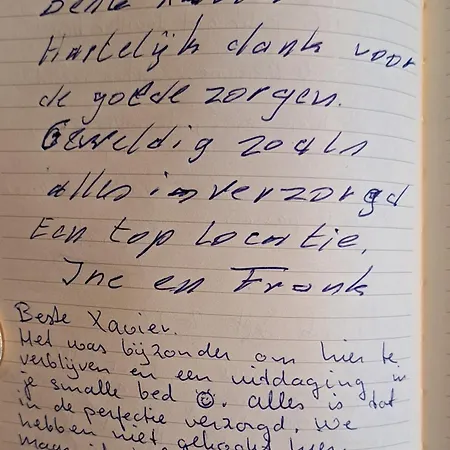 Beste Xavier
Hartelijk dank voor
de goede zorgen.
Geweldig zoals
alles is verzorgd
Een top locatie.
Ine en Frank
Beste Xavier.
Het was bijzonder om hier te
verblijven en een uitdaging in
je smalle bed ☺. Alles is tot
in de perfectie verzorgd. We
hebben niet gekookt